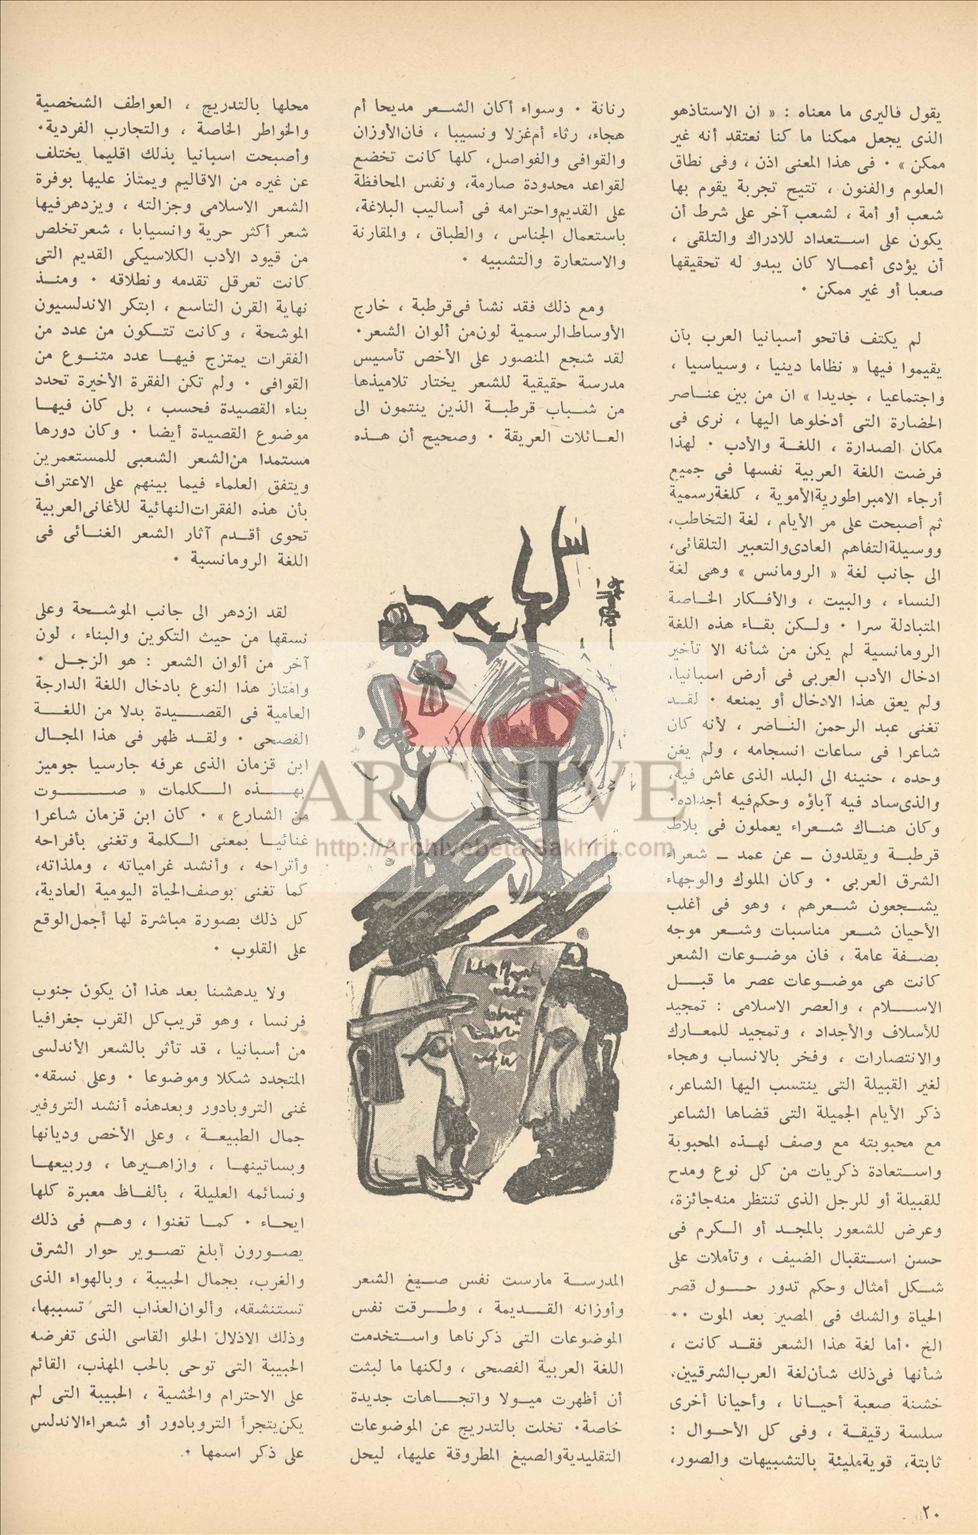 يقول فاليرى ما معناه : « ان الاستاذهو
الذى يجعل ممكنا ما كنا نعتقد أنه غير
ممكن » ٠ فى هذا المعنى اذن ، وفى نطاق
العلوم والفنون ، تتيح تجربة يقوم بها
شعب أو أمة ، لشعب آخر على شرط أن
يكون على استعداد للادراك والتلقى ،
أن يؤدى أعمالا كان يبدو له تحقيقها
صعبا أو غير ممكن ٠
لم يكتف فاتحو أسبانيا العرب بأن
يقيموا فيها « نظاما دينيا ، وسياسيا ،
واجتماعيا ، جديدا » ان من بين عناصر
الحضارة التى أدخلوها اليها ، نرى فى
مكان الصدارة ، اللغة والأدب ٠ لهذا
فرضت اللغة العربية نفسها فى جميع
أرجاء الامبراطورية الأموية ، كلغة رسمية
ثم أصبحت على مر الأيام ، لغة التخاطب،
ووسيلة التفاهم العادى والتعبير التلقائى،
الى جانب لغة « الرومانس » وهى لغة
النساء ، والبيت ، والأفكار الخاصة
المتبادلة سرا ٠ ولكن بقاء هذه اللغة
الرومانسية لم يكن من شأنه الا تأخير
ادخال الأدب العربى فى أرض اسبانيا،
ولم يعق هذا الادخال أو يمنعه ٠ لقد
تغنى عبد الرحمن الناصر ، لأنه كان
شاعرا فى ساعات انسجامه ، ولم يغن
وحده ، حنينه الى البلد الذى عاش فيه،
والذى ساد فيه آباؤه وحكم فيه أجداده٠
وكان هناك شعراء يعملون فى بلاط
قرطبة ويقلدون ــ عن عمد ــ شعراء
الشرق العربى ٠ وكان الملوك والوجهاء
يشجعون شعرهم ، وهو فى أغلب
الأحيان شعر مناسبات وشعر موجه
بصفة عامة ، فان موضوعات الشعر
كانت هى موضوعات عصر ما قبل
الاسلام ، والعصر الاسلامى : تمجيد
للأسلاف والأجداد ، وتمجيد للمعارك
والانتصارات ، وفخر بالانساب وهجاء
لغير القبيلة التى ينتسب اليها الشاعر،
ذكر الأيام الجميلة التى قضاها الشاعر
مع محبوبته مع وصف لهذه المحبوبة
واستعادة ذكريات من كل نوع ومدح
للقبيلة أو للرجل الذى تنتظر منه جائزة،
وعرض للشعور بالمجد أو الكرم فى
حسن استقبال الضيف ، وتأملات على
شكل أمثال وحكم تدور حول قصر
الحياة والشك فى المصير بعد الموت ٠٠
الخ ٠ أما لغة هذا الشعر فقد كانت ،
شأنها فى ذلك شأن لغة العرب الشرقيين،
خشنة صعبة أحيانا ، وأحيانا أخرى
سلسة رقيقة ، وفى كل الأحوال :
ثابتة، قوية مليئة بالتشبيهات والصور،
رنانة ٠ وسواء أكان الشعر مديحا أم
هجاء، رثاء أم غزلا ونسيبا ، فان الأوزان
والقوافى والفواصل، كلها كانت تخضع
لقواعد محدودة صارمة، ونفس المحافظة
على القديم واحترامه فى أساليب البلاغة،
باستعمال الجناس ، والطباق ، والمقارنة
والاستعارة والتشبيه ٠
ومع ذلك فقد نشأ فى قرطبة ، خارج
الأوساط الرسمية لون من ألوان الشعر٠
لقد شجع المنصور على الأخص تأسيس
مدرسة حقيقية للشعر يختار تلاميذها
من شباب قرطبة الذين ينتمون الى
العائلات العريقة ٠ وصحيح أن هذه
المدرسة مارست نفس صيغ الشعر
وأوزانه القديمة ، وطرقت نفس
الموضوعات التى ذكرناها واستخدمت
اللغة العربية الفصحى ، ولكنها ما لبثت
أن أظهرت ميولا واتجاهات جديدة
خاصة٠ تخلت بالتدريج عن الموضوعات
التقليدية والصيغ المطروقة عليها، ليحل
محلها بالتدريج ، العواطف الشخصية
والخواطر الخاصة ، والتجارب الفردية٠
وأصبحت اسبانيا بذلك اقليما يختلف
عن غيره من الاقاليم ويمتاز عليها بوفرة
الشعر الاسلامى وجزالته ، ويزدهر فيها
شعر أكثر حرية وانسيابا ، شعر تخلص
من قيود الأدب الكلاسيكى القديم التى
كانت تعرقل تقدمه ونطلاقه ٠ ومنذ
نهاية القرن التاسع ، ابتكر الاندلسيون
الموشحة ، وكانت تتكون من عدد من
الفقرات يمتزج فيها عدد متنوع من
القوافى ٠ ولم تكن الفقرة الأخيرة تحدد
بناء القصيدة فحسب ، بل كان فيها
موضوع القصيدة أيضا ٠ وكان دورها
مستمدا من الشعر الشعبى للمستعمرين
ويتفق العلماء فيما بينهم على الاعتراف
بأن هذه الفقرات النهائية للأغانى العربية
تحوى أقدم آثار الشعر الغنائى فى
اللغة الرومانسية ٠
لقد ازدهر الى جانب الموشحة وعلى
نسقها من حيث التكوين والبناء ، لون
آخر من ألوان الشعر : هو الزجل ٠
وامتاز هذا النوع بادخال اللغة الدارجة
العامية فى القصيدة بدلا من اللغة
الفصحى ٠ ولقد ظهر فى هذا المجال
ابن قزمان الذى عرفه جارسيا جوميز
بهذه الكلمات « صوت
من الشارع » ٠ كان ابن قزمان شاعرا
غنائيا بمعنى الكلمة وتغنى بأفراحه
وأتراحه ، وأنشد غرامياته ، وملذاته،
كما تغنى بوصف الحياة اليومية العادية،
كل ذلك بصورة مباشرة لها أجمل الوقع
على القلوب ٠
ولا يدهشنا بعد هذا أن يكون جنوب
فرنسا ، وهو قريب كل القرب جغرافيا
من أسبانيا ، قد تأثر بالشعر الأندلسى
المتجدد شكلا وموضوعا ٠ وعلى نسقه٠
غنى التروبادور وبعدهذه أنشد التروفير
جمال الطبيعة ، وعلى الأخص وديانها
وبساتينها ، وازاهيرها ، وربيعها
ونسائمه العليلة ، بألفاظ معبرة كلها
ايحاء ٠ كما تغنوا ، وهم فى ذلك
يصورون أبلغ تصوير حوار الشرق
والغرب، بجمال الحبيبة ، وبالهواء الذى
تستنشقه، وألوان العذاب التى تسببها،
وذلك الاذلال الحلو القاسى الذى تفرضه
الحبيبة التى توحى بالحب المهذب، القائم
على الاحترام والخشية ، الحبيبة التى لم
يكن يتجرأ التروبادور أو شعراء الاندلس
على ذكر اسمها ٠
ARCHIVE
http://Archivebeta.Sakhrit.com
٢٠